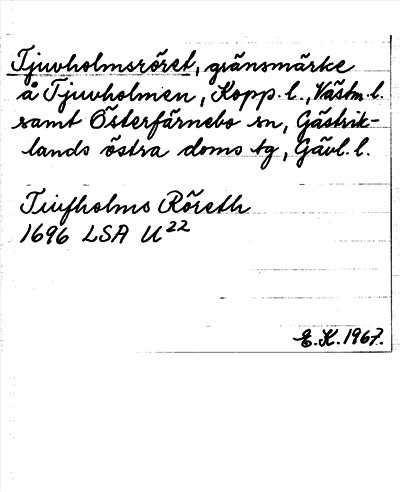 Tjuvholmsröret, gränsmärke
å Tjuvholmen, Kopp. l., Västm. l.
samt Österfärnebo sn, Gästrik-
lands östra doms tg, Gävl. l.
Tiufholms Röreth
1696 LSA U22
E.K. 1967.